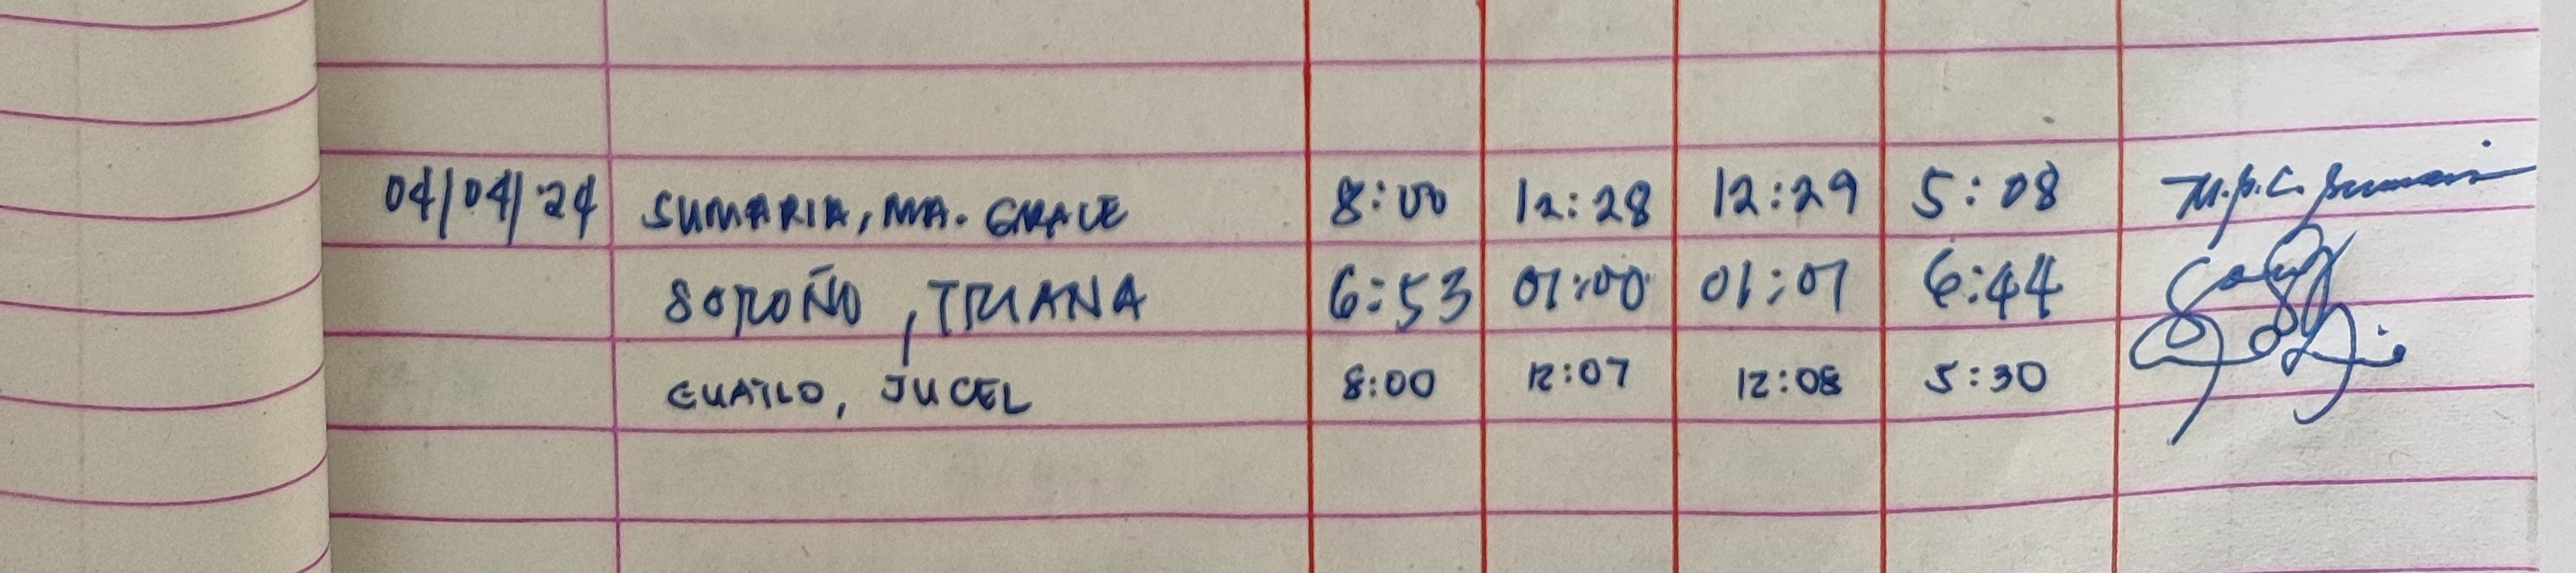 04/04/24 SUMARIA, MA. GRACE 8:00 12:28 12:29 5:08
SOROÑO, TRIANA 6:53 01:00 01:01 6:44
JUCEL 8:00 12:07 12:08 5:30